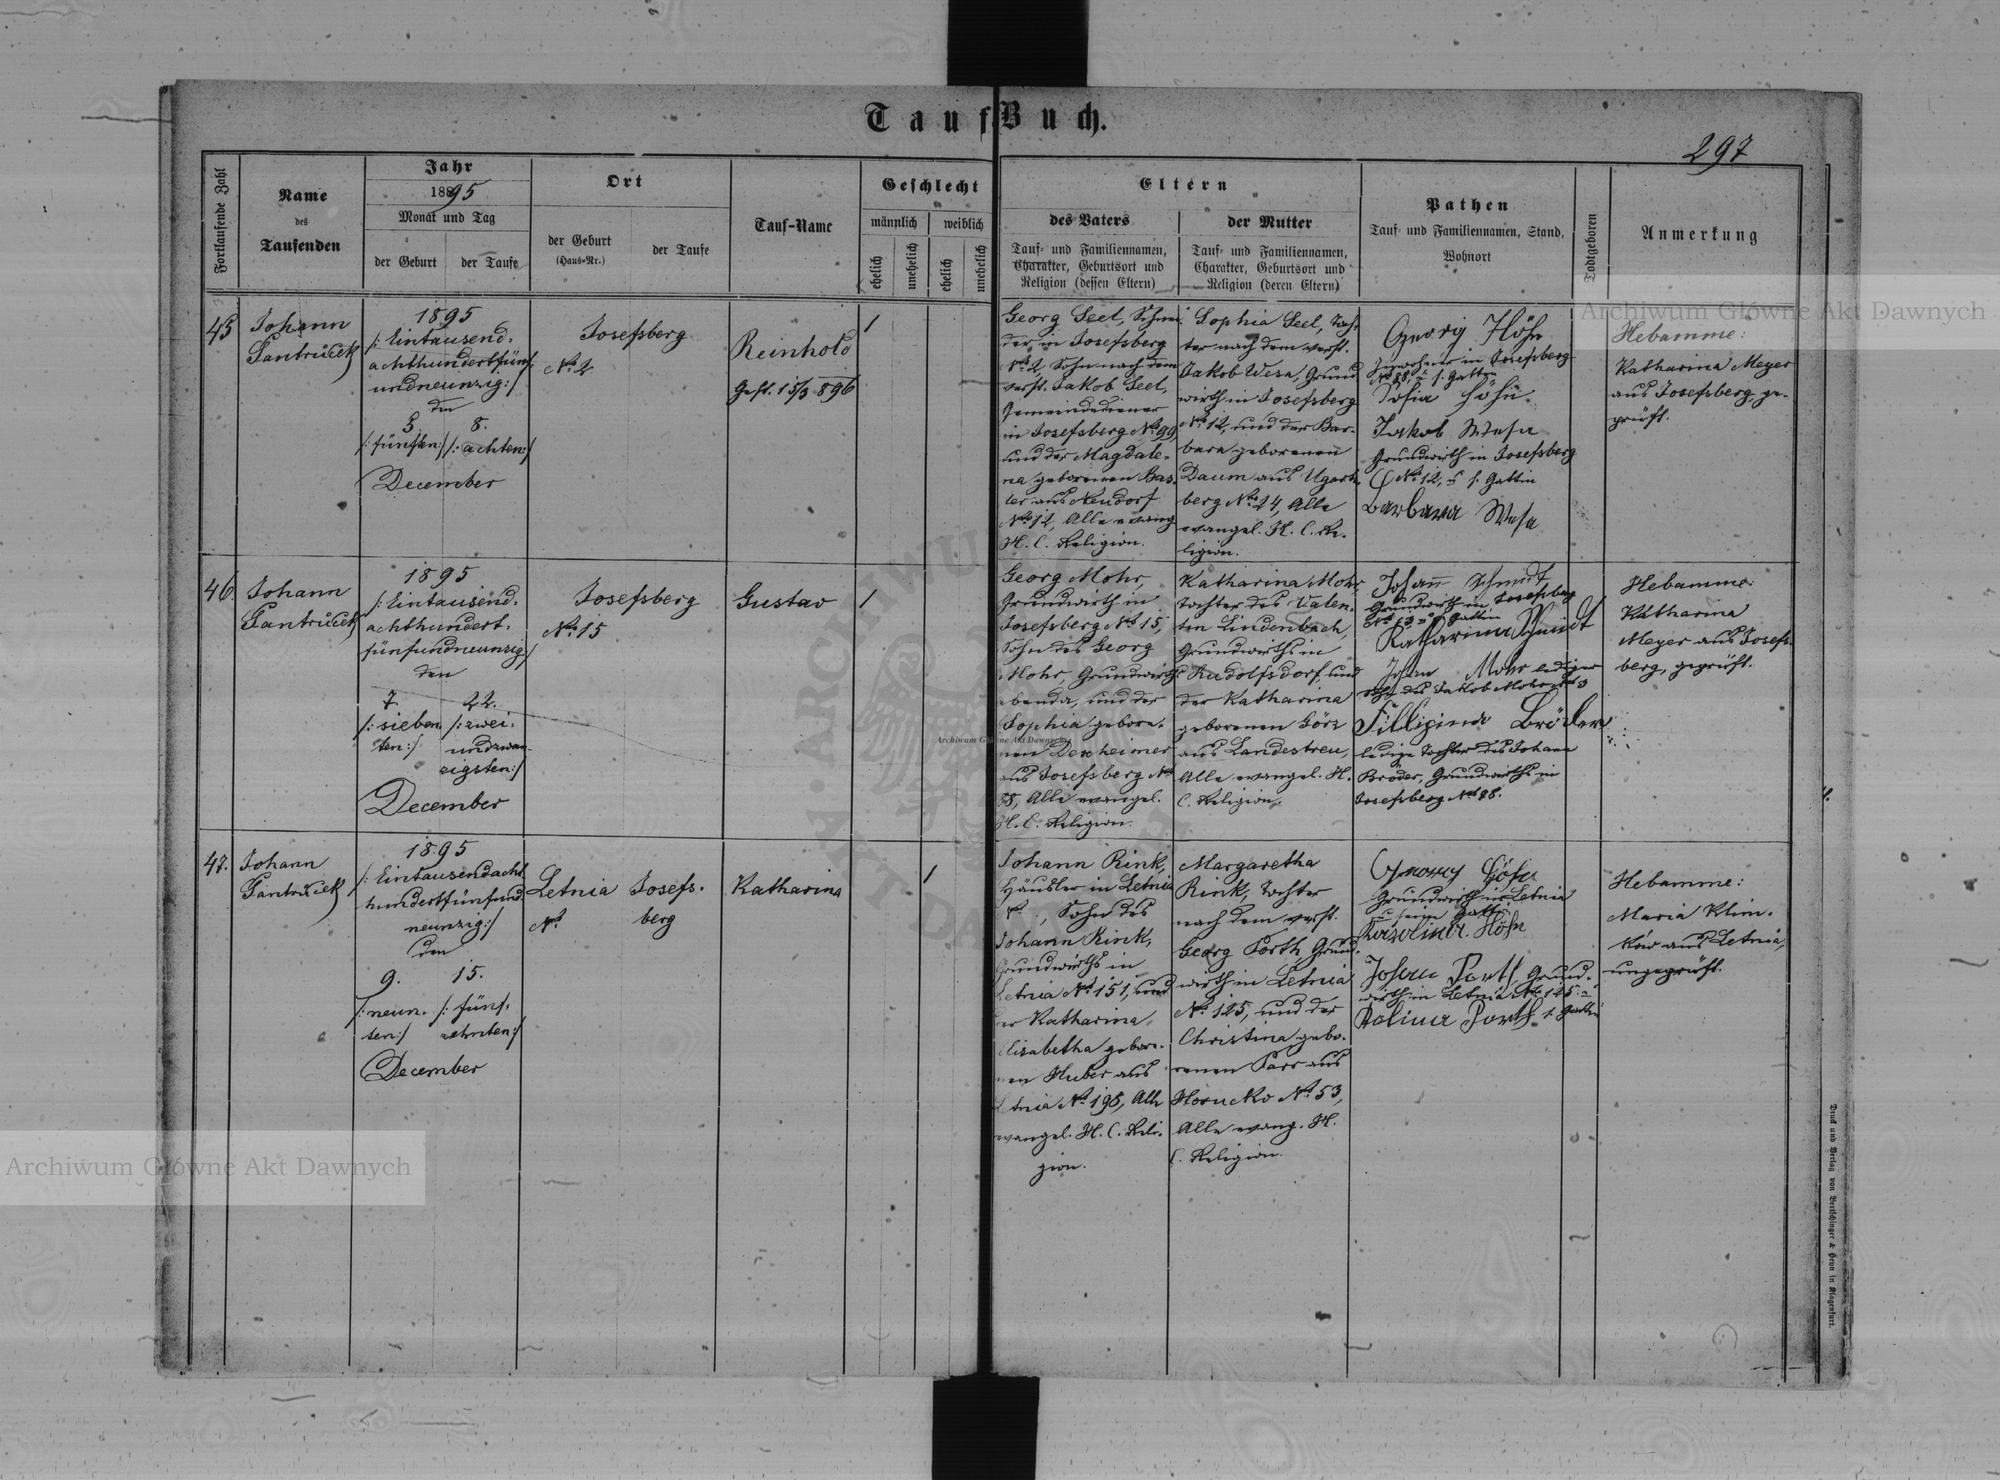 Tauf Buch.
297
Fortlaufende Zahl
Name
des
Taufenden
Jahr
1895
Monat und Tag
der Geburt
der Taufe
Ort
der Geburt
(Haus-Nr.)
der Taufe
Tauf-Name
Geschlecht
männlich
weiblich
ehelich
unehelich
ehelich
unehelich
Eltern
des Vaters
Tauf- und Familiennamen,
Charakter, Geburtsort und
Religion (dessen Eltern)
der Mutter
Tauf- und Familiennamen,
Charakter, Geburtsort und
Religion (deren Eltern)
Pathen
Tauf- und Familiennamen, Stand,
Wohnort
Todtgeboren
Anmerkung
45
Johann
1895
/: Eintausend.
achthundertfünf
undneunzig :/
den
5. 8.
/: fünften :/ /: achten :/
December
Josefsberg
No. 2
Reinhold
Gest. 15/3 896
1
Georg Seel,
der in Josefsberg
No. 2, Sohn nach dem
verst. Jakob Seel,
Gemeindediener
in Josefsberg No. 99,
und der Magdale-
na geborenen Bas-
ler aus Neudorf
No. 12, Alle evang.
H. C. Religion.
Sophia Seel, Toch-
ter nach dem verst.
Jakob Wesa, Grund
wirth in Josefsberg
No. 12, und der Bar-
bara geborenen
Daum aus Ugarts
berg No. 24, Alle
evangel. H. C. Re-
ligion.
Georg Höhn
in Josefsberg
s. Gattin
Sofia Höhn.
Jakob Wesa
Grundwirth in Josefsberg
No. 12, u s. Gattin
Barbara Wesa
Hebamme:
Katharina Meyer
aus Josefsberg, ge-
prüft.
46.
Johann
1895
/: Eintausend.
achthundert.
fünfundneunzig :/
den
7. 22.
/: sieben /: zwei.
ten :/ undzwan-
zigsten :/
December
Josefsberg
No. 15
Gustav
1
Georg Mohr,
Grundwirth in
Josefsberg No. 15,
Sohn des Georg
Mohr, Grundwirths
ebenda, und der
Sophia gebore-
nen Dexheimer
aus Josefsberg No.
Alle evangel.
H. C. Religion.
Katharina Mohr,
Tochter des Valen-
tin Lindenbach,
Grundwirths in
Rudolfsdorf, und
der Katharina
geborenen Görz
aus Landestreu,
Alle evangel. H.
C. Religion.
Johann Schmidt
Grundwirth in Josefsberg
No. 13 u s. Gattin
Katharina Schmidt
Johann Mohr lediger
Sohn des Jakob Mohr
Fillipine Bröder
ledige Tochter des Johann
Bröder, Grundwirths in
Josefsberg No. 98.
Hebamme:
Katharina
Meyer aus Josefs-
berg, geprüft.
47.
Johann
1895
/: Eintausendacht
hundertfünfund
neunzig :/
den
9. 15.
/: neun- /: fünf-
ten :/ zehnten :/
December
Letnia Josefs-
No. berg
Katharina
1
Johann Rink,
Häusler in Letnia
No. , Sohn des
Johann Rink,
Grundwirths in
Letnia No. 151, und
der Katharina
Elisabetha gebore-
nen Huber aus
Letnia No. 198, Alle
evangel. H. C. Reli-
gion.
Margaretha
Rink, Tochter
nach dem verst.
Georg Porth, Grund-
wirth in Letnia
No. 125, und der
Christina gebo-
renen Parr aus
Horucko No. 53,
Alle evang. H.
C. Religion.
Georg Höhn
Grundwirth in Letnia
u seine Gattin
Karolina Höhn
Johann Porth Grund-
wirth in Letnia No. 125 u
Porth s. Gattin
Hebamme:
Maria Klim-
ków aus Letnia,
ungeprüft.
Druck und Verlag von Bertschinger & Heyn in Klagenfurt.
Archiwum Główne Akt Dawnych
Archiwum Główne Akt Dawnych
Archiwum Główne Akt Dawnych